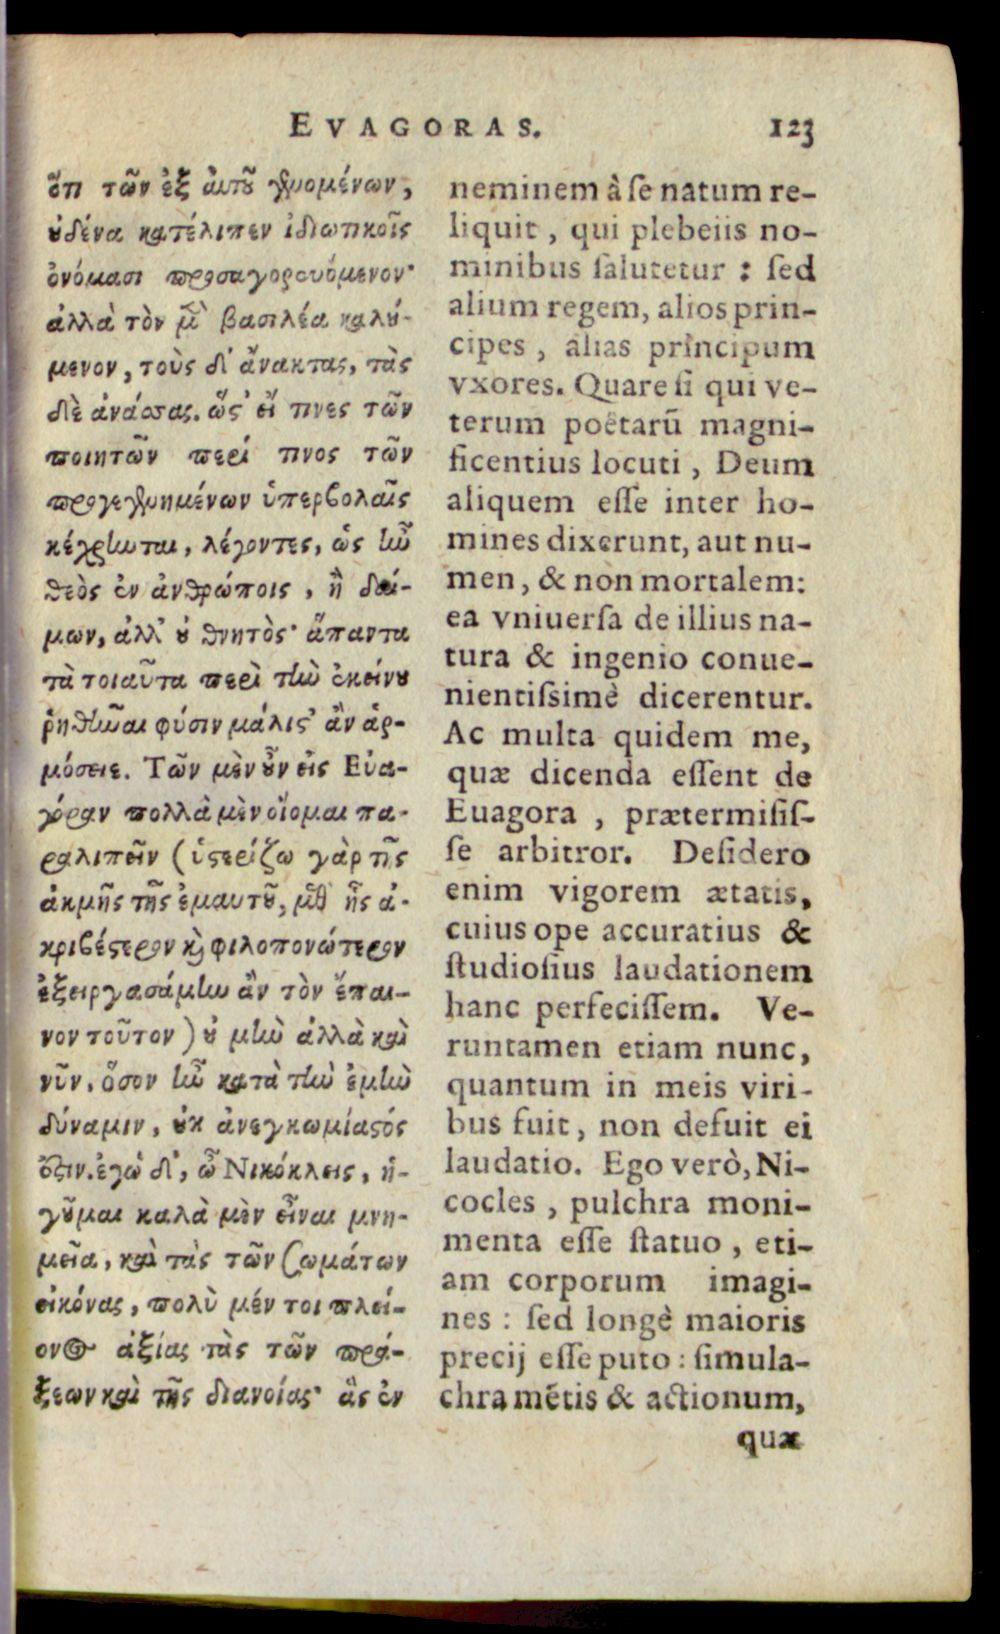 EVAGORAS. 123
ὅτι τῶν ἐξ αὐτοῦ γενομένων,
οὐδένα κατέλιπεν ἰδιωτικοῖς
ὀνόμασι προσαγορευόμενον·
ἀλλὰ τὸν μὲν βασιλέα καλού-
μενον, τοὺς δ' ἄνακτας, τὰς
δὲ ἀνάσσας. ὥστ' εἴ τινες τῶν
ποιητῶν περί τινος τῶν
προγεγενημένων ὑπερβολαῖς
κέχρηνται, λέγοντες, ὡς ἦν
θεὸς ἐν ἀνθρώποις, ἢ δαί-
μων, ἀλλ' οὐ θνητὸς· ἅπαντα
τὰ τοιαῦτα περὶ τὴν ἐκείνου
ῥηθῆναι φύσιν μάλιστ' ἂν ἁρ-
μόσειε. Τῶν μὲν οὖν εἰς Εὐα-
γόραν πολλὰ μὲν οἴομαι πα-
ραλιπεῖν (ὑστερίζω γὰρ τῆς
ἀκμῆς τῆς ἐμαυτοῦ, μεθ' ἧς ἀ-
κριβέστερον καὶ φιλοπονώτερον
ἐξειργασάμην ἂν τὸν ἔπαι-
νον τοῦτον) οὐ μὴν ἀλλὰ καὶ
νῦν, ὅσον ἦν κατὰ τὴν ἐμὴν
δύναμιν, οὐκ ἀνεγκωμίαστός
ἐστιν. ἐγὼ δ', ὦ Νικόκλεις, ἡ-
γοῦμαι καλὰ μὲν εἶναι μνη-
μεῖα, καὶ τὰς τῶν σωμάτων
εἰκόνας, πολὺ μέν τοι πλεί-
ονος ἀξίας τὰς τῶν πρά-
ξεων καὶ τῆς διανοίας· ἃς ἐν
neminem à se natum re-
liquit, qui plebeiis no-
minibus salutetur : sed
alium regem, alios prin-
cipes, alias principum
vxores. Quare si qui ve-
terum poëtarū magni-
ficentius locuti, Deum
aliquem esse inter ho-
mines dixerunt, aut nu-
men, & non mortalem:
ea vniuersa de illius na-
tura & ingenio conue-
nientissimè dicerentur.
Ac multa quidem me,
quæ dicenda essent de
Euagora, prætermisis-
se arbitror. Desidero
enim vigorem ætatis,
cuius ope accuratius &
studiosius laudationem
hanc perfecissem. Ve-
runtamen etiam nunc,
quantum in meis viri-
bus fuit, non defuit ei
laudatio. Ego verò, Ni-
cocles, pulchra moni-
menta esse statuo, eti-
am corporum imagi-
nes : sed longè maioris
precij esse puto : simula-
chra mētis & actionum,
quæ